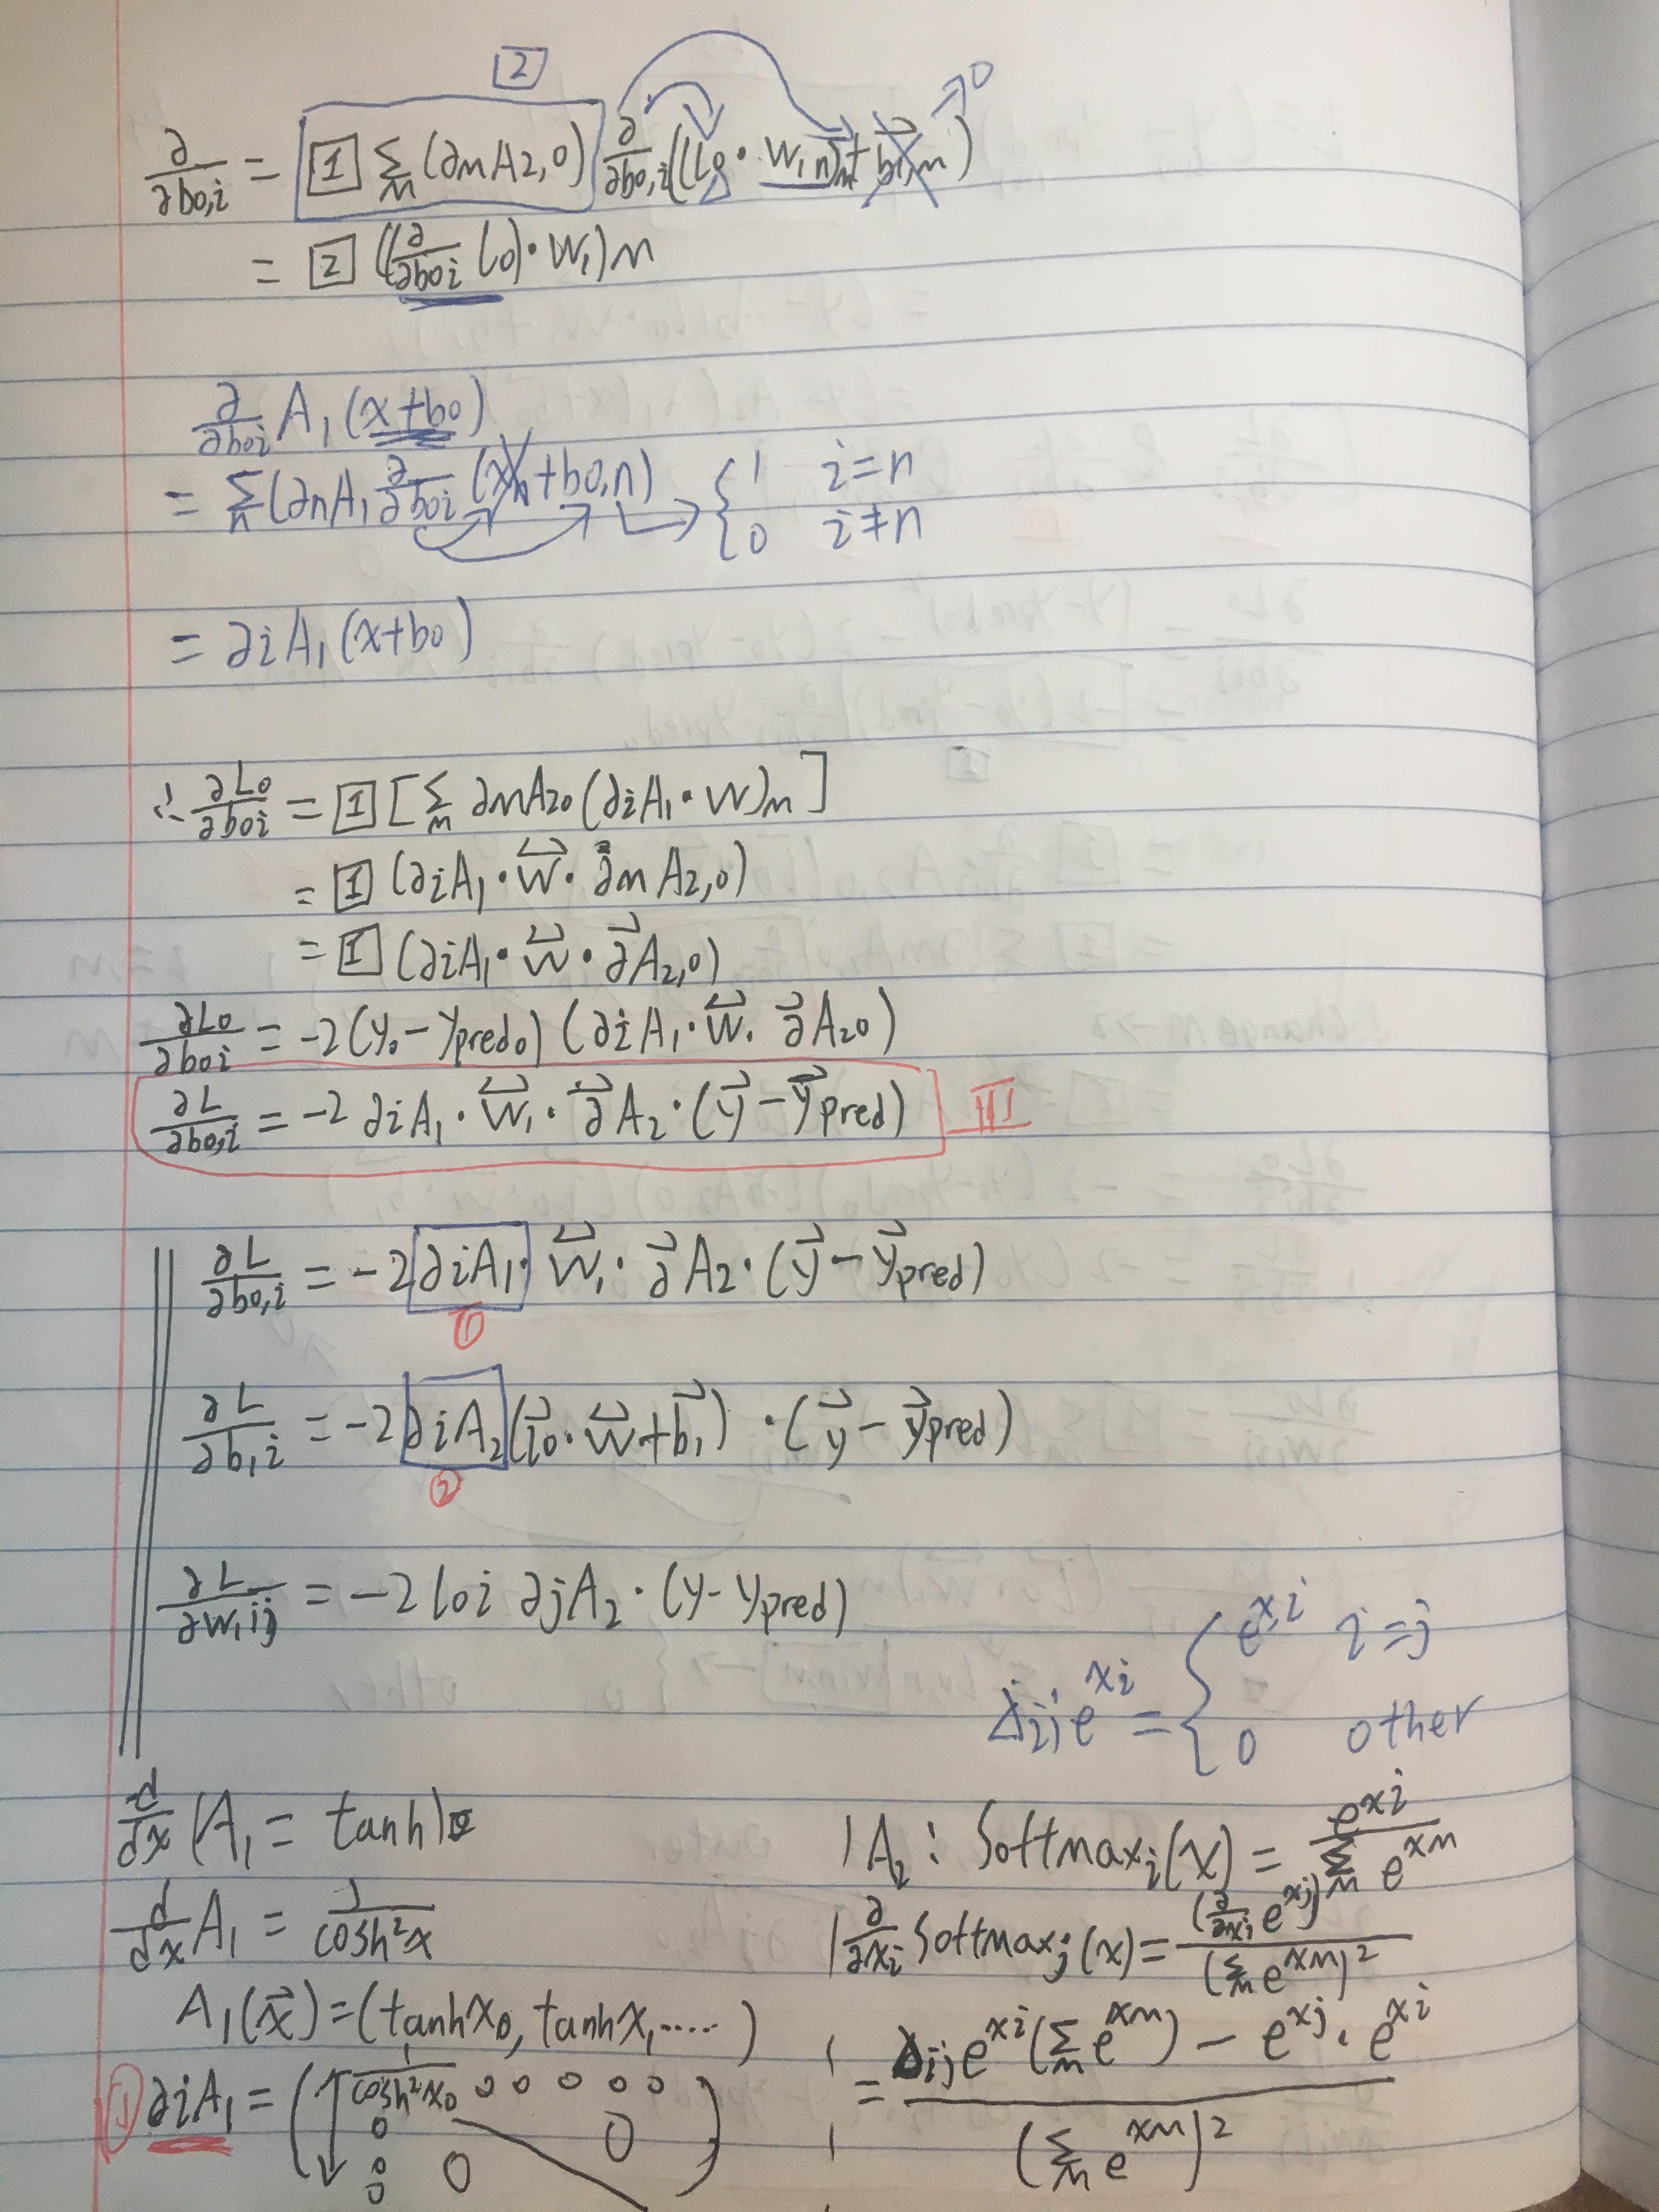 [2]
∂/∂b0,i = [1] Σm (∂mA2,0) ∂/∂b0,i ((l0 · W1 n)m + b1,m) → 0
= [2] ((∂/∂b0i l0) · W1)m
∂/∂b0i A1 (x+b0)
= Σn (∂nA1 ∂/∂b0i (xn + b0,n) → { 1 i=n
0 i≠n
= ∂iA1 (x+b0)
∴ ∂L0/∂b0i = [1] [Σm ∂mA20 (∂iA1 · W)m]
= [1] (∂iA1 · W · ∂m A2,0)
= [1] (∂iA1 · W · ∂A2,0)
∂L0/∂b0i = -2 (y0 - ypred0) (∂iA1 · W · ∂A20)
∂L/∂b0,i = -2 ∂iA1 · W1 · ∂A2 · (y - ypred) III
∂L/∂b0,i = -2 ∂iA1 · W1 · ∂A2 · (y - ypred)
①
∂L/∂b1i = -2 ∂iA2 (l0 · W + b1) · (y - ypred)
②
∂L/∂W1ij = -2 l0i ∂jA2 · (y - ypred)
Δij e^xi = { e^xi i=j
0 other
d/dx (A1 = tanh)
d/dx A1 = 1/cosh²x
A1(x) = (tanhx0, tanhx1.....)
① ∂iA1 = ( 1/cosh²x0 0 0 0 0 0
0 0
0 0 )
A2 : Softmaxi(x) = e^xi / Σm e^xm
∂/∂xi Softmaxj(x) = (∂/∂xi e^xj) / (Σm e^xm)²
= Δij e^xi (Σm e^xm) - e^xj · e^xi / (Σm e^xm)²